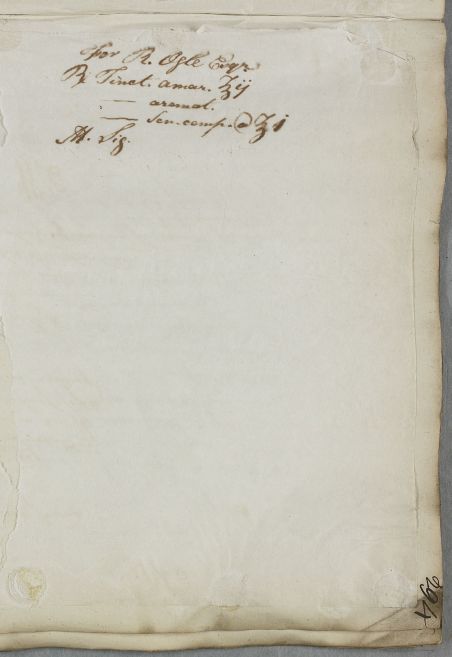 For R. Ogle Esqr.
℞ Tinct. amar. ℥ij
— aromat.
— Sen. comp. @ ℥i
M. Sig.